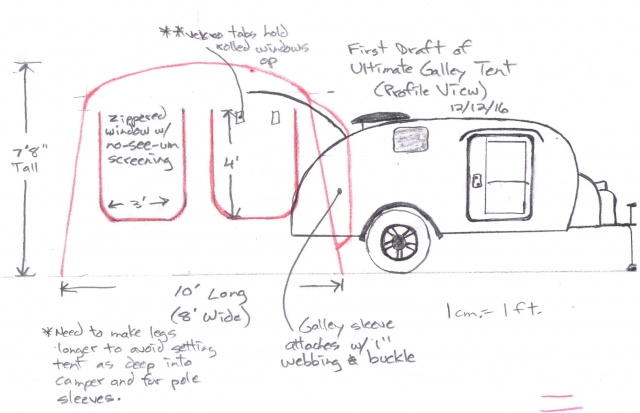 **velcro tabs hold
rolled windows
up
First Draft of
Ultimate Galley Tent
(Profile View)
12/12/16
Zippered
window w/
no-see-um
screening
7'8"
Tall
4'
3'
10' Long
(8' Wide)
1cm. = 1 ft.
Galley sleeve
attaches w/ 1"
webbing & buckle
*Need to make legs
longer to avoid setting
tent as deep into
camper and for pole
sleeves.